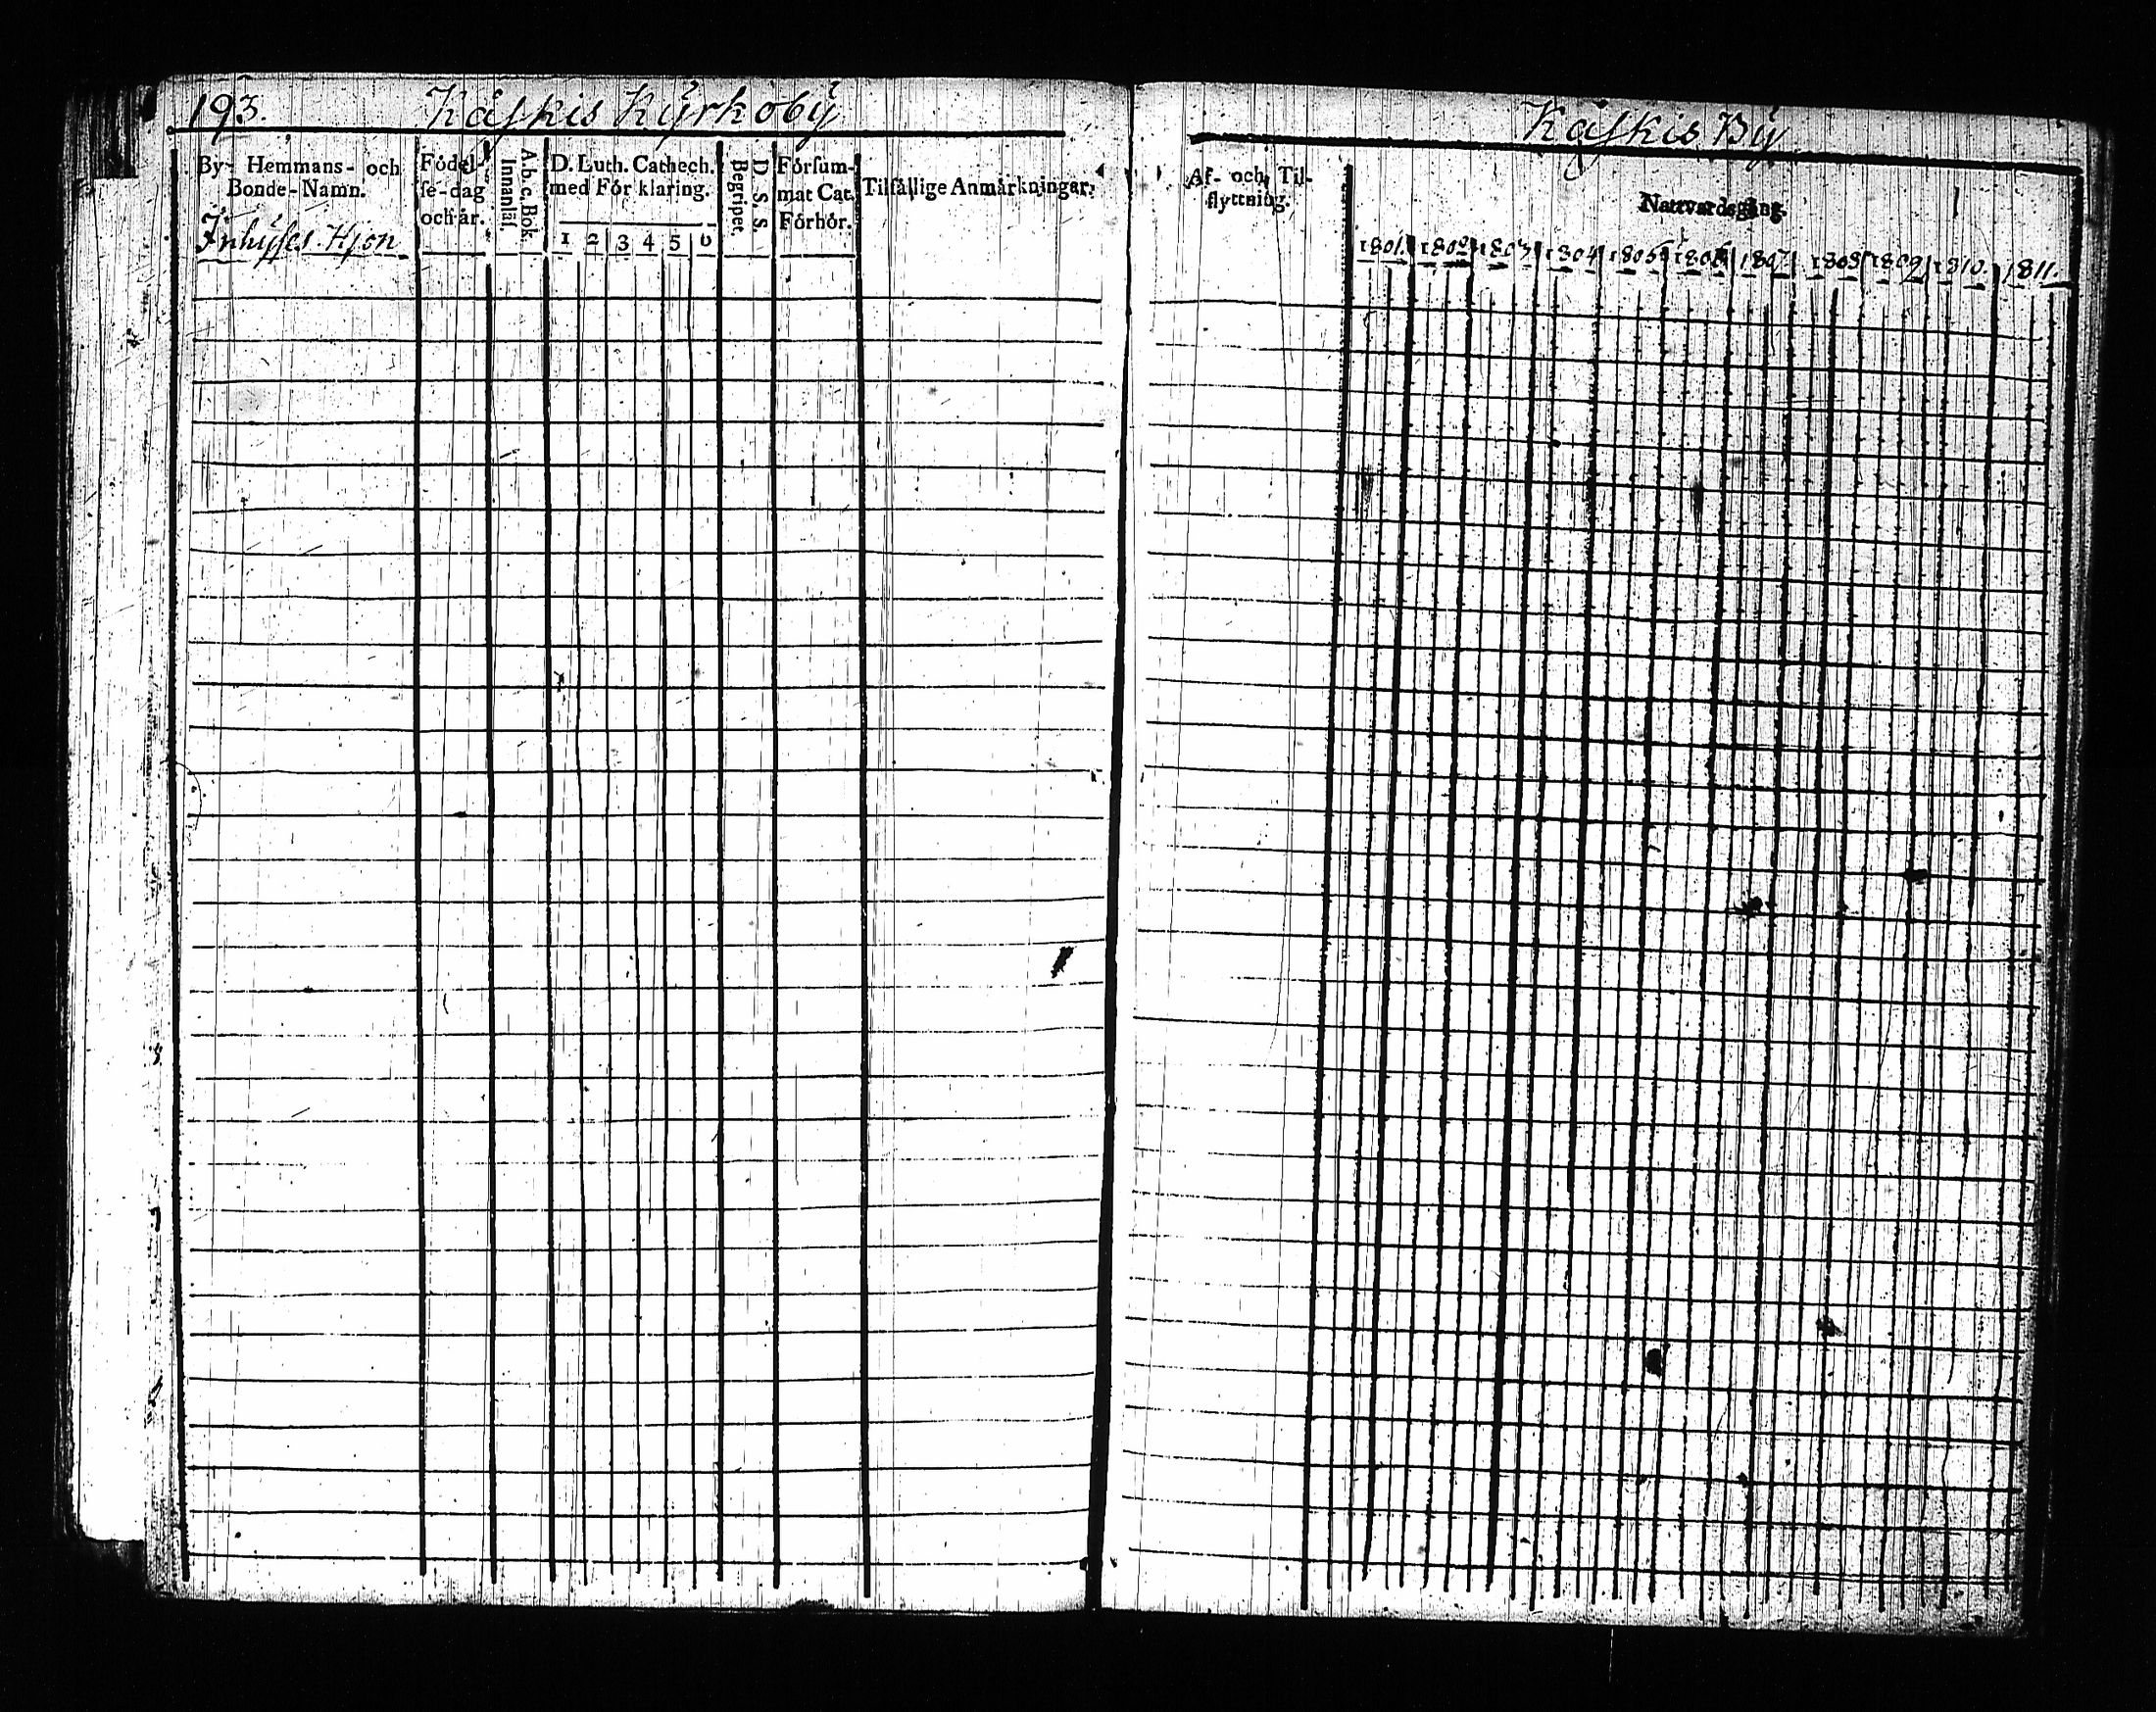 193. Kåskis Kyrkoby
By- Hemmans- och
Bonde-Namn.
Inhyses Hjon
Födel-
se-dag
och år.
Ab.c.Bok.
Innanläs.
D. Luth. Cathech.
med Förklaring.
1 2 3 4 5 6
D. S. S.
Begripet.
Försum-
mat Cat.
Förhör.
Tilfällige Anmärkningar.
Kåskis By
Af- och Til-
flyttning.
Nattvardsgång.
1801. 1802 1803 1804 1805 1806 1807 1808 1809 1810. 1811.